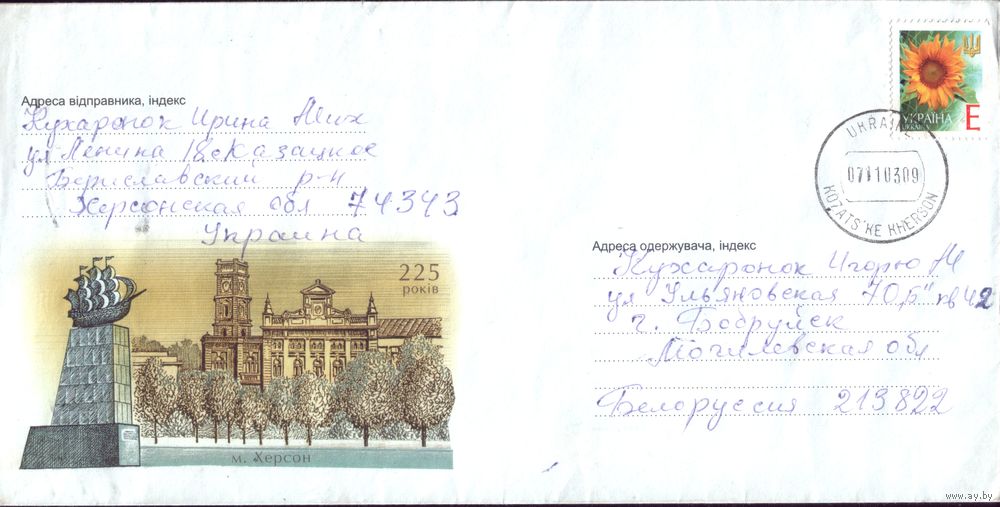 Адреса відправника, індекс
Кухаронок Ирина Мих
ул Ленина 18 с Казацкое
Бериславский р-н
Херсонская обл 74343
Украина
225
років
м. Херсон
УКРАЇНА
UKRAINA
E
UKRAINE
071110309
KOZATS'KE KHERSON
Адреса одержувача, індекс
Кухаронок Игорю М
ул Ульяновская 70 "Б" кв 42
г. Бобруйск
Могилевская обл
Белоруссия 213822
www.ay.by